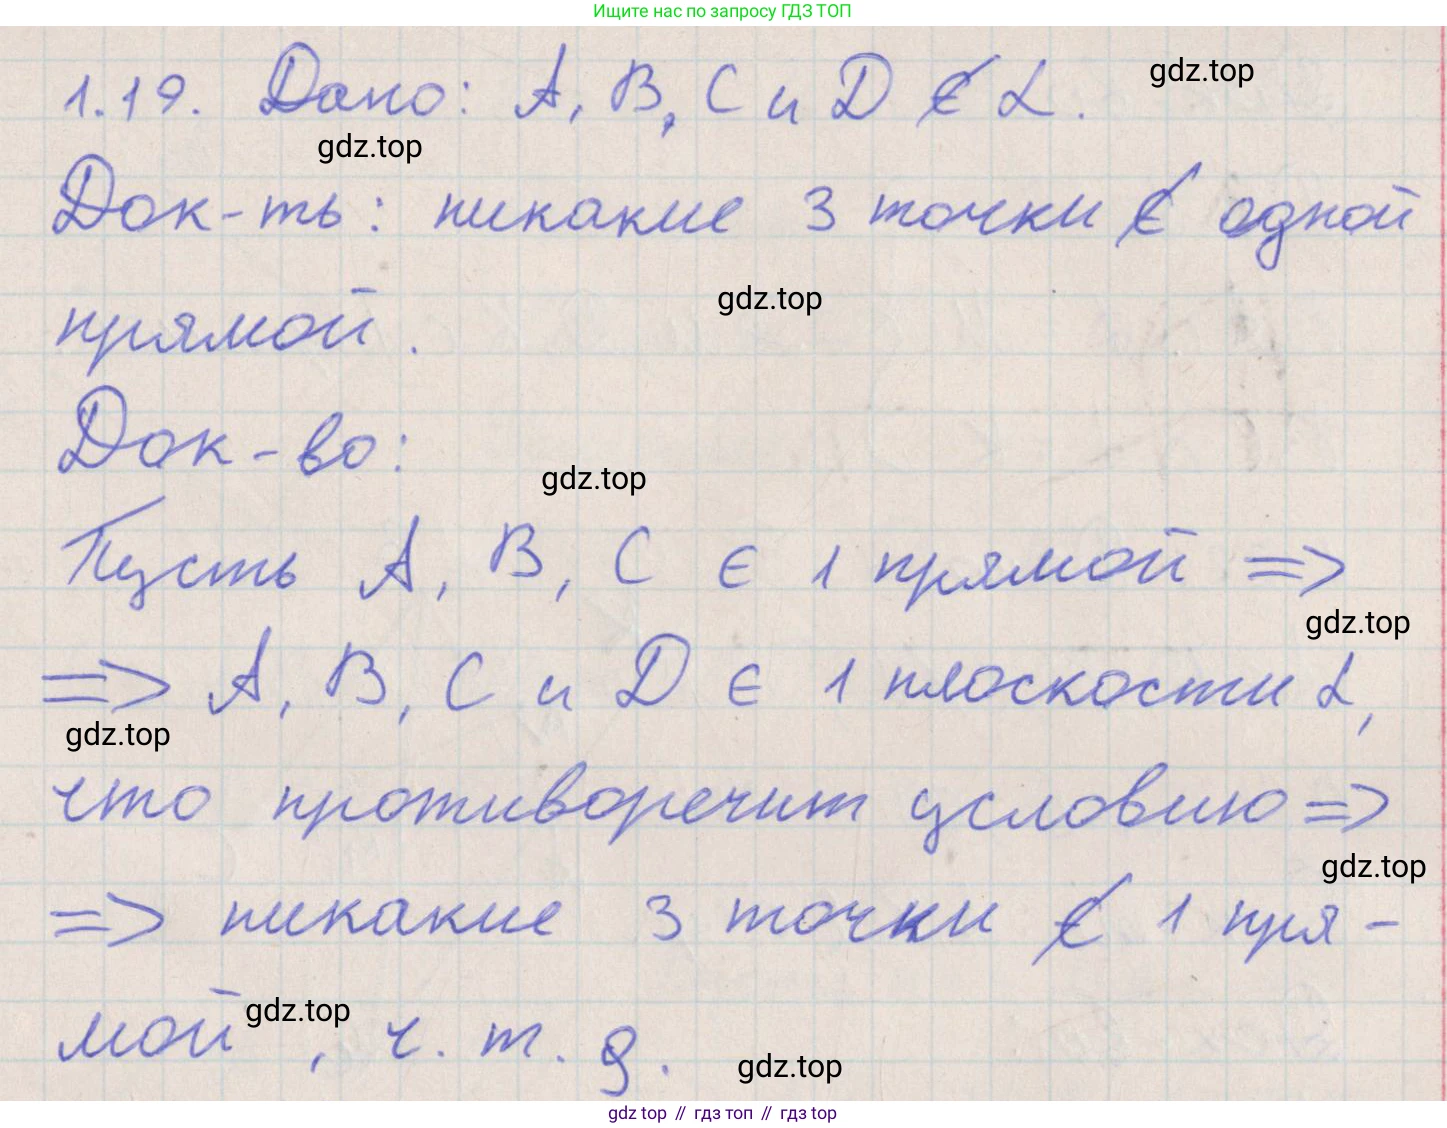 Ищите нас по запросу ГДЗ ТОП
1.19. Дано: A, B, C и D ∉ α.
gdz.top
gdz.top
Док-ть: никакие 3 точки ∉ одной
gdz.top
прямой.
Док-во:
gdz.top
Пусть A, B, C ∈ 1 прямой =>
gdz.top
=> A, B, C и D ∈ 1 плоскости α,
gdz.top
что противоречит условию =>
gdz.top
=> никакие 3 точки ∉ 1 пря-
gdz.top
мой, ч. т. д.
gdz.top
gdz top // гдз топ // гдз top